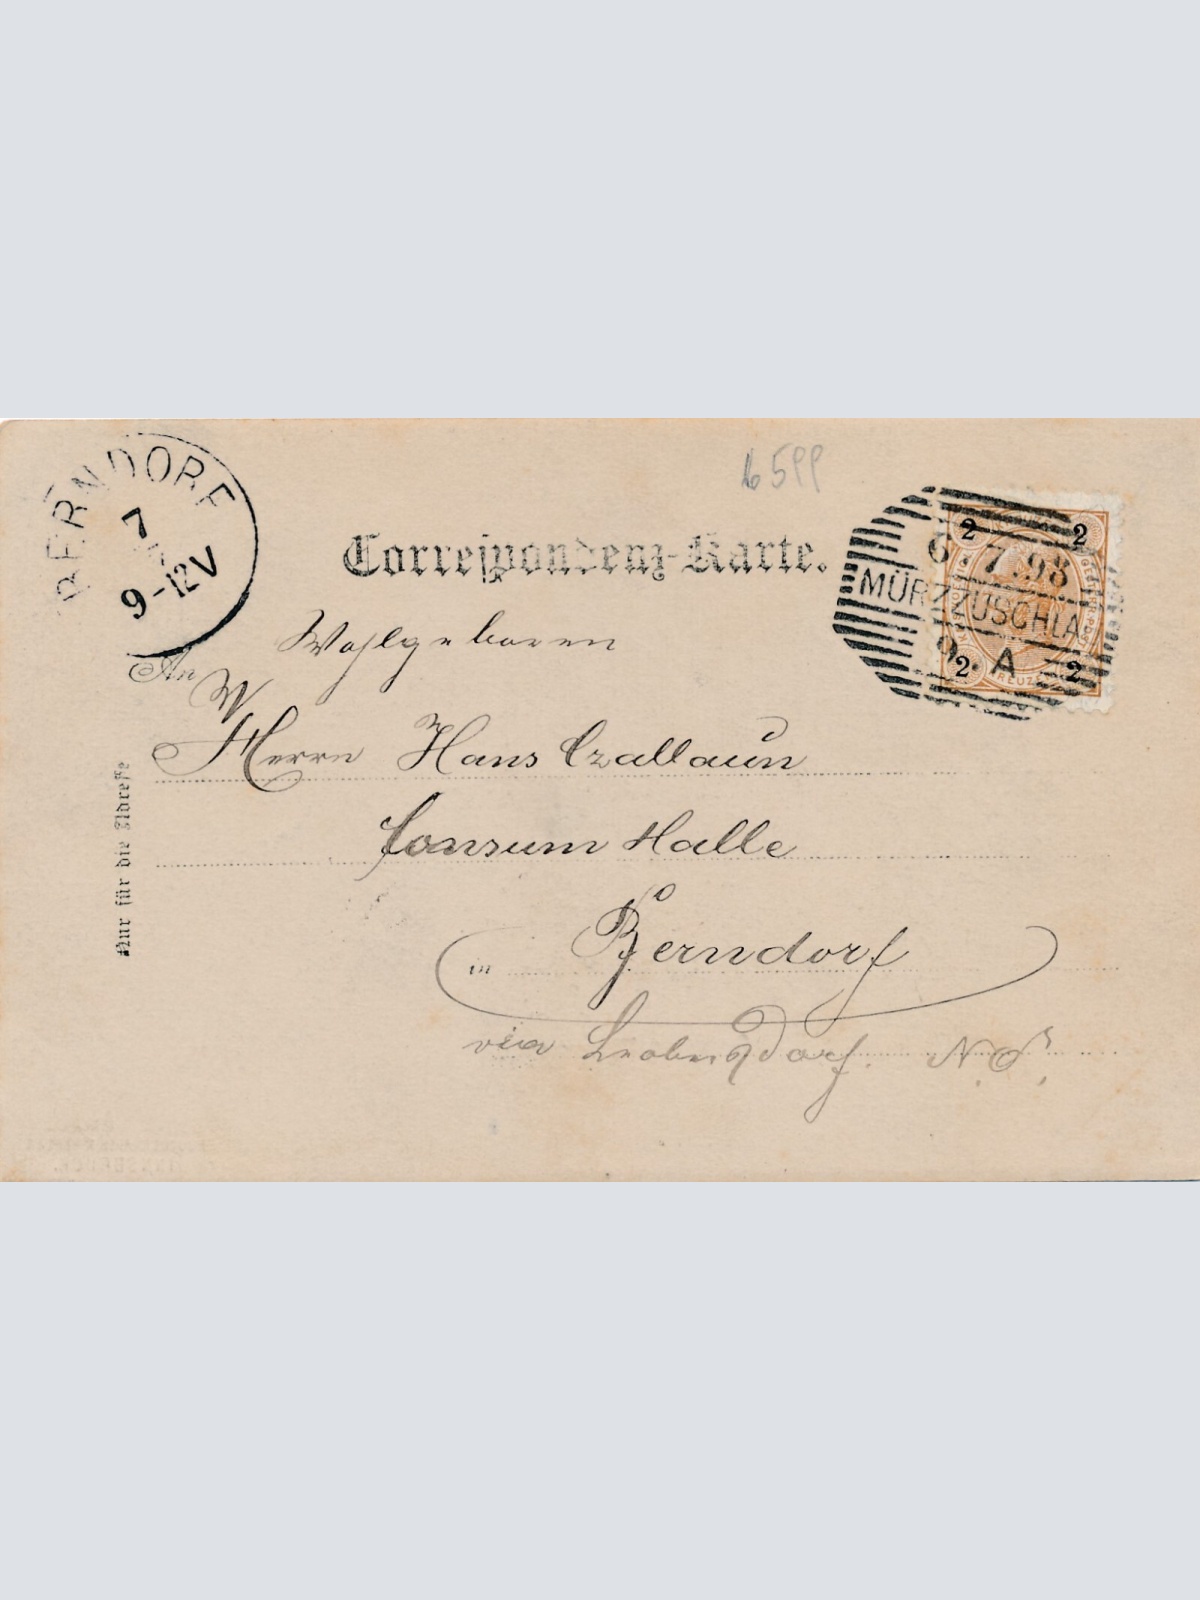 6599
BERNDORF
7
9-12V
Correspondenz-Karte.
2 2
6.7.98
MÜRZZUSCHLA
9. A
2 2
KREUZER
Wohlgeboren
An
W
Herrn Hans Czallaun
Consum Halle
Nur für die Adresse
in Berndorf
via Leobersdorf. N.Ö.